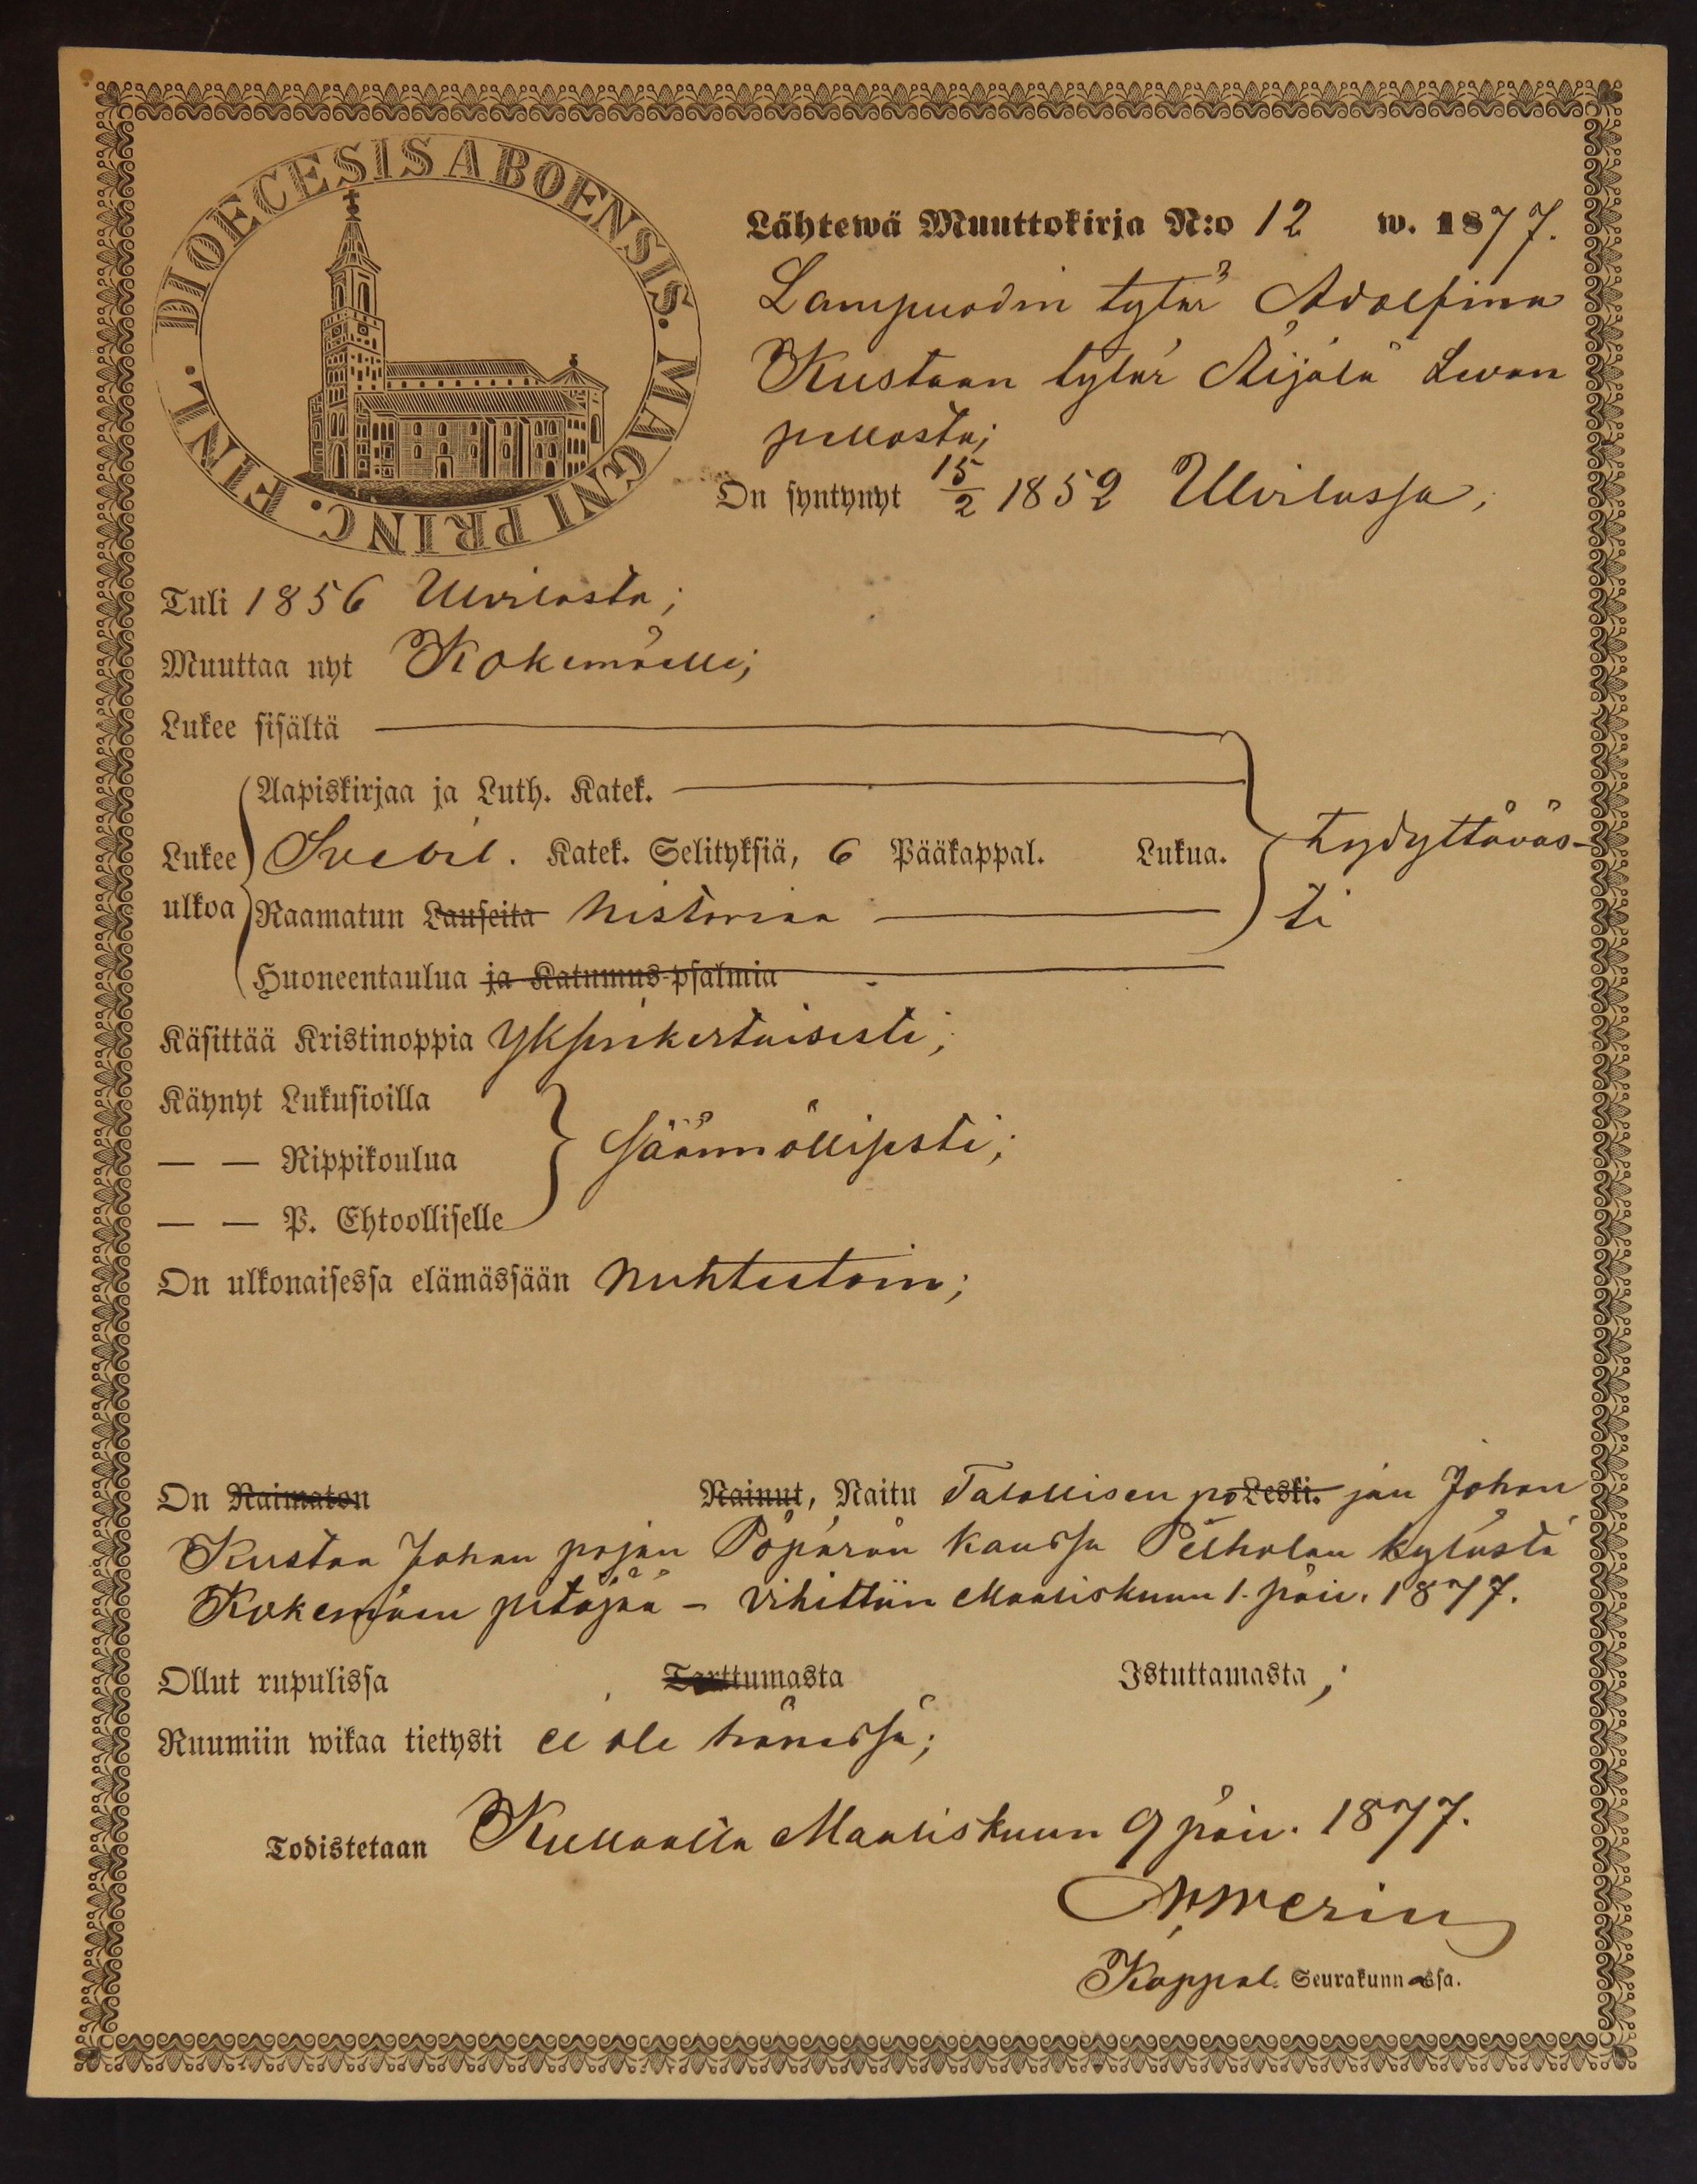 DIOECESIS ABOENSIS. MAGNI PRINC. FINL.
Lähtewä Muuttokirja N:o 12 w. 1877.
Lampuodin tytär Adolfina
Kustaan tytär Äijälä Levan
pellosta;
On syntynyt 15/2 1852 Ulvilassa;
Tuli 1856 Ulvilasta;
Muuttaa nyt Kokemäelle;
Lukee sisältä
Aapiskirjaa ja Luth. Katek.
Lukee Svebil. Katek. Selityksiä, 6 Pääkappal. Lukua. tydyttäväs-
ulkoa Raamatun Lauseita historiaa ti
Huoneentaulua ja Katumus-psalmia
Käsittää Kristinoppia Yksinkertaisesti;
Käynyt Lukusioilla
— — Rippikoulua säännöllisesti;
— — P. Ehtoolliselle
On ulkonaisessa elämässään nuhteetoin;
On Naimaton Nainut, Naitu Talollisen po Leski. jan Johan
Kustaa Johan pojan Pöpärön kanssa Peiholan kylästä
Kokemäen pitäjää - vihittiin Maaliskuun 1. päiv. 1877.
Ollut rupulissa Tarttumasta Istuttamasta;
Ruumiin wikaa tietysti ei ole hänessä;
Todistetaan Kullaalla Maaliskuun 9 päiv. 1877.
Kappal. Seurakunnassa.